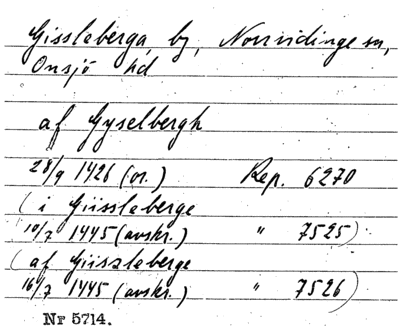 Gissleberga, by, Norrvidinge sn,
Onsjö hd
af Gyselbergh
28/9 1426 (or.) Rep. 6270
(i Giissleberge
10/7 1445 (avskr.) " 7525)
(af Giiszleberge
16/7 1445 (avskr.) " 7526)
Nr 5714.